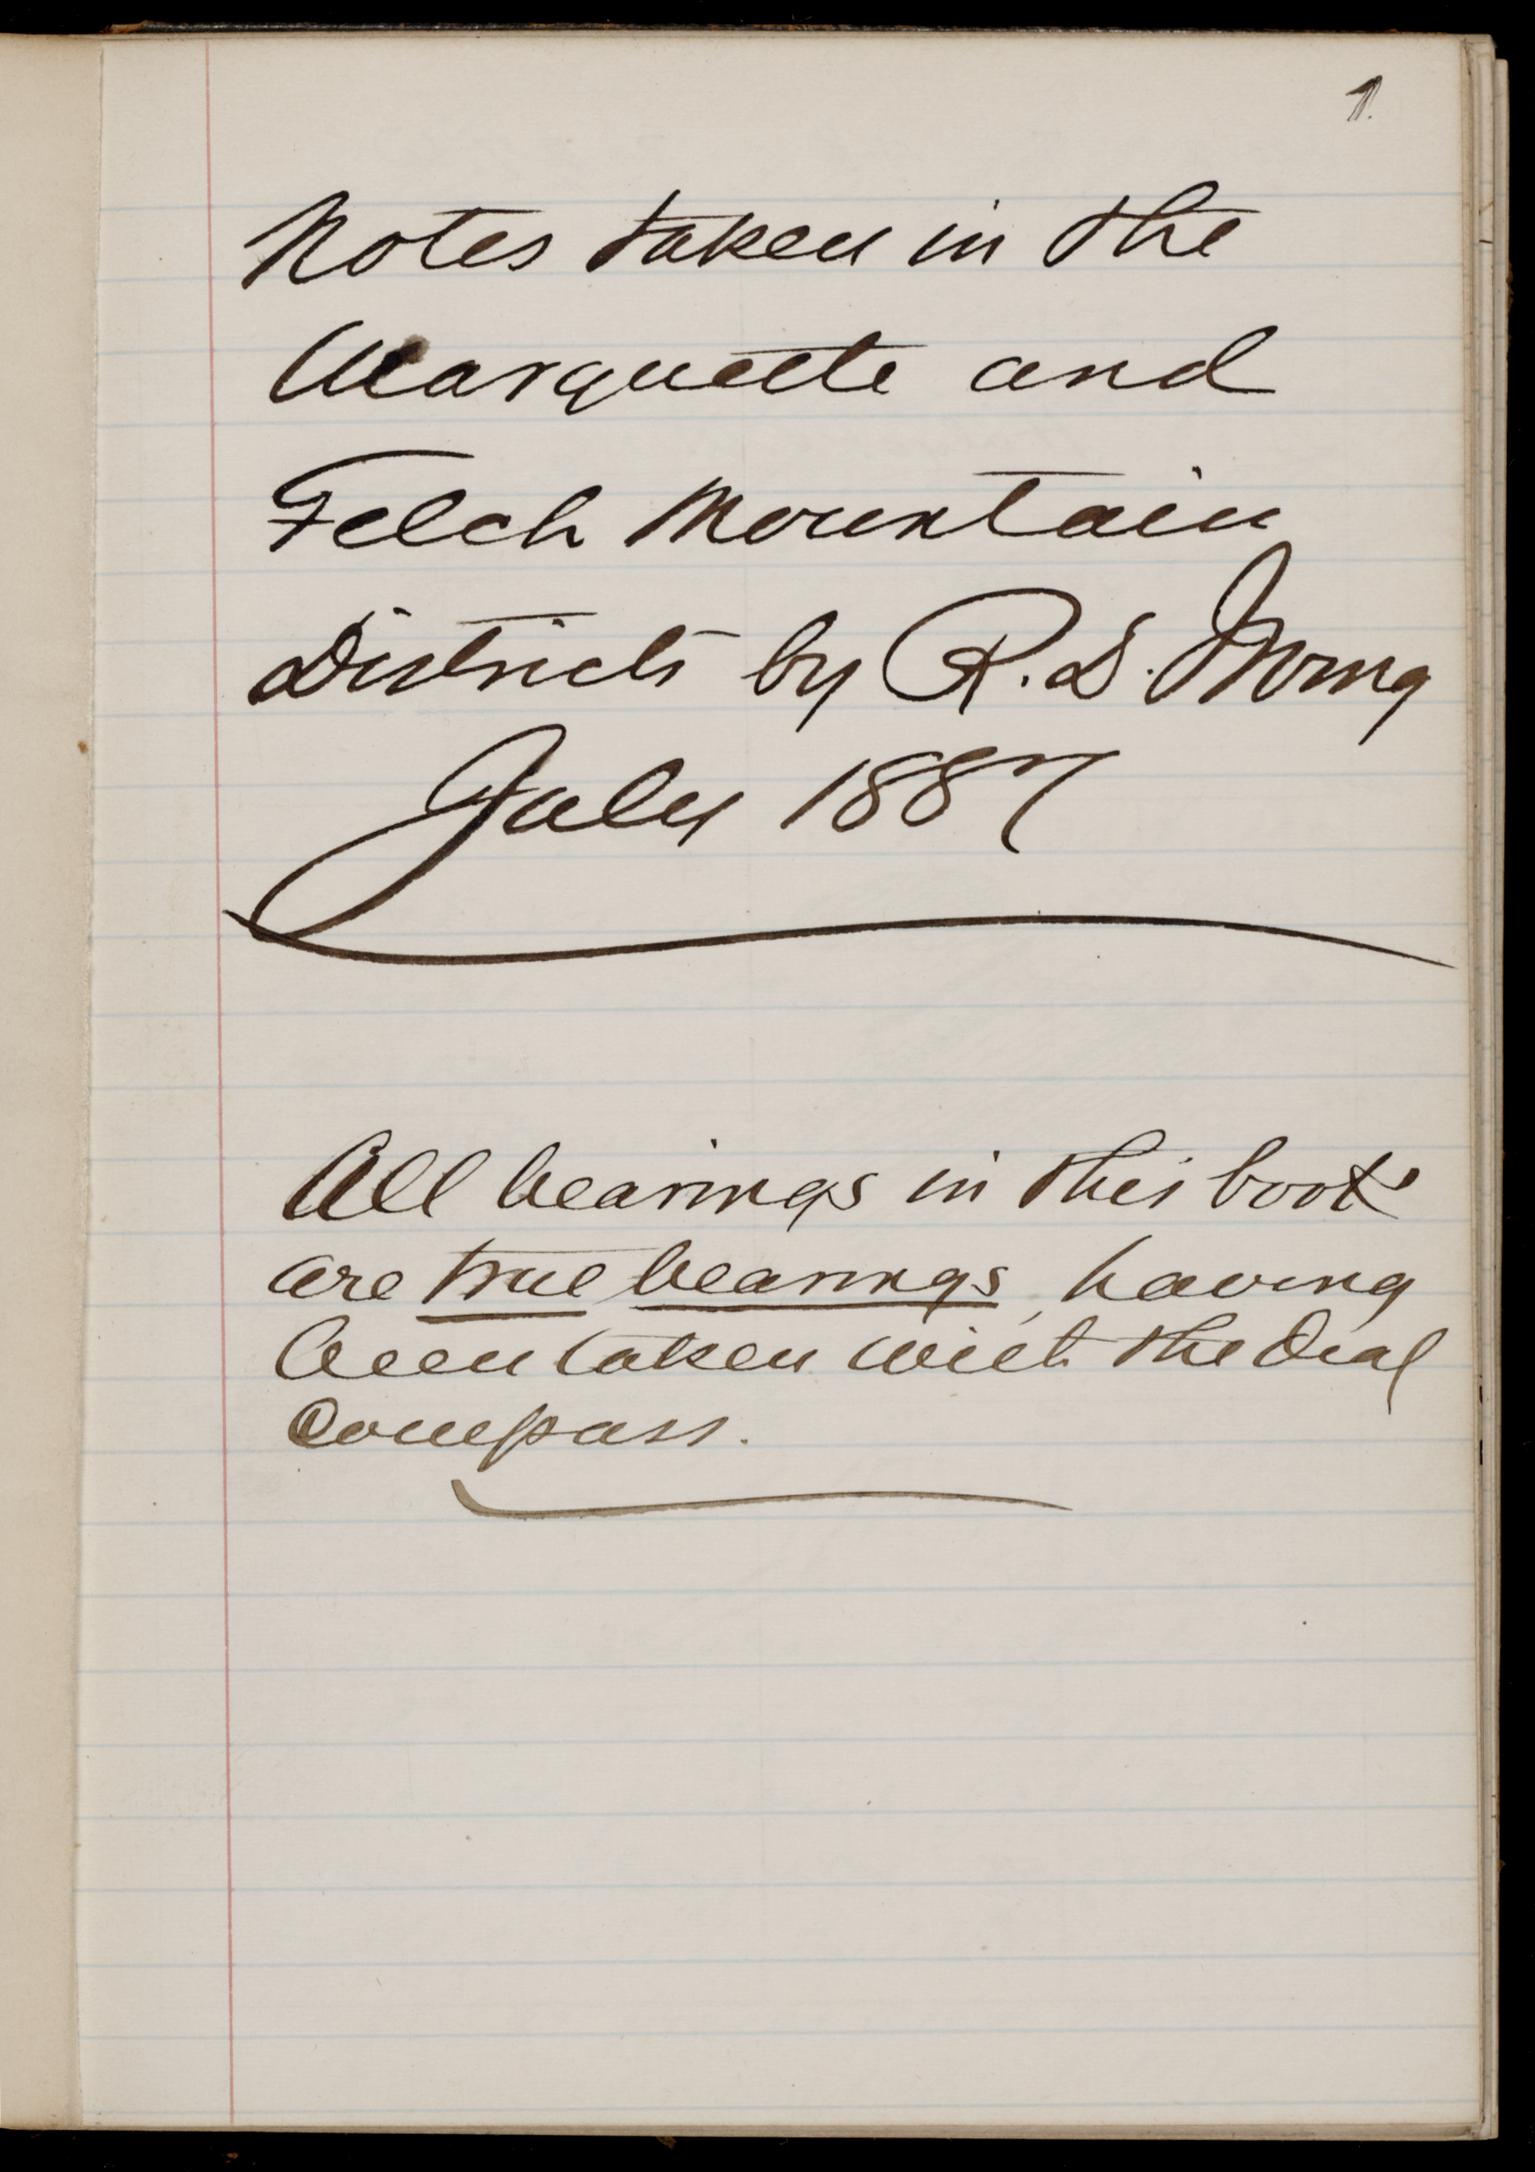 1.
Notes taken in the
Marquette and
Felch Mountain
Districts by R. D. Irving
July 1887
All bearings in this book
are true bearings, having
been taken with the Dial
Compass.